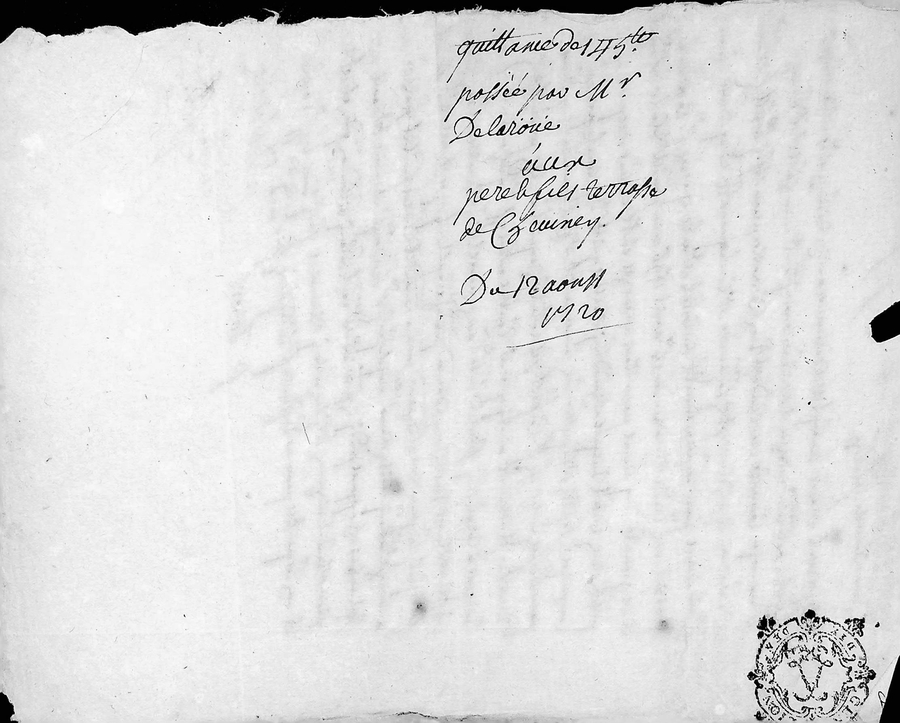 quittance de 145ᵗᵗ
passéé par Mʳ
Delaroüe
aux
pere & fils terrasse
de Chauiney.
Du 12 aoust
1720